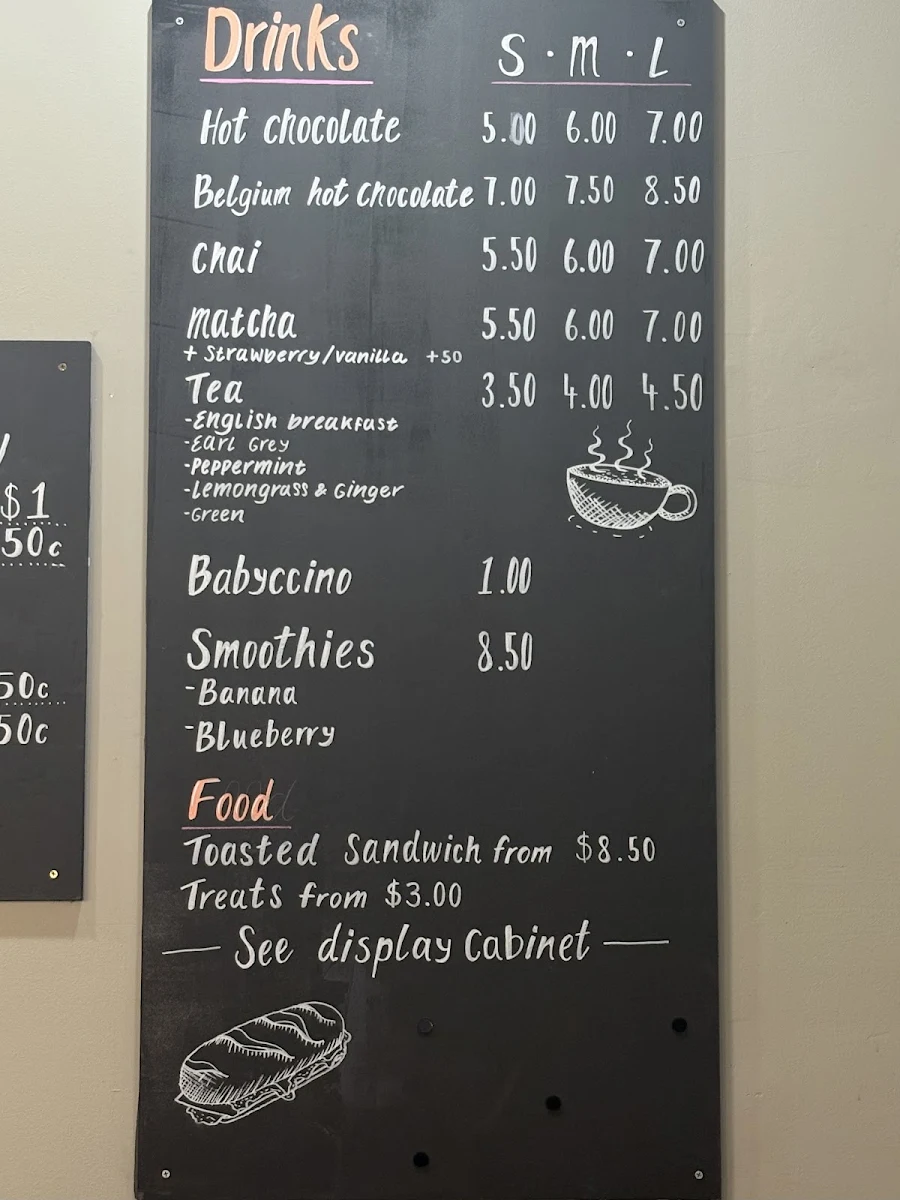 Drinks S · M · L
Hot chocolate 5.00 6.00 7.00
Belgium hot chocolate 7.00 7.50 8.50
chai 5.50 6.00 7.00
matcha 5.50 6.00 7.00
+ Strawberry/vanilla +50
Tea 3.50 4.00 4.50
-English breakfast
-Earl Grey
-Peppermint
-Lemongrass & Ginger
-Green
Babyccino 1.00
Smoothies 8.50
-Banana
-Blueberry
Food
Toasted Sandwich from $8.50
Treats from $3.00
— See display Cabinet —
$1
50c
50c
50c